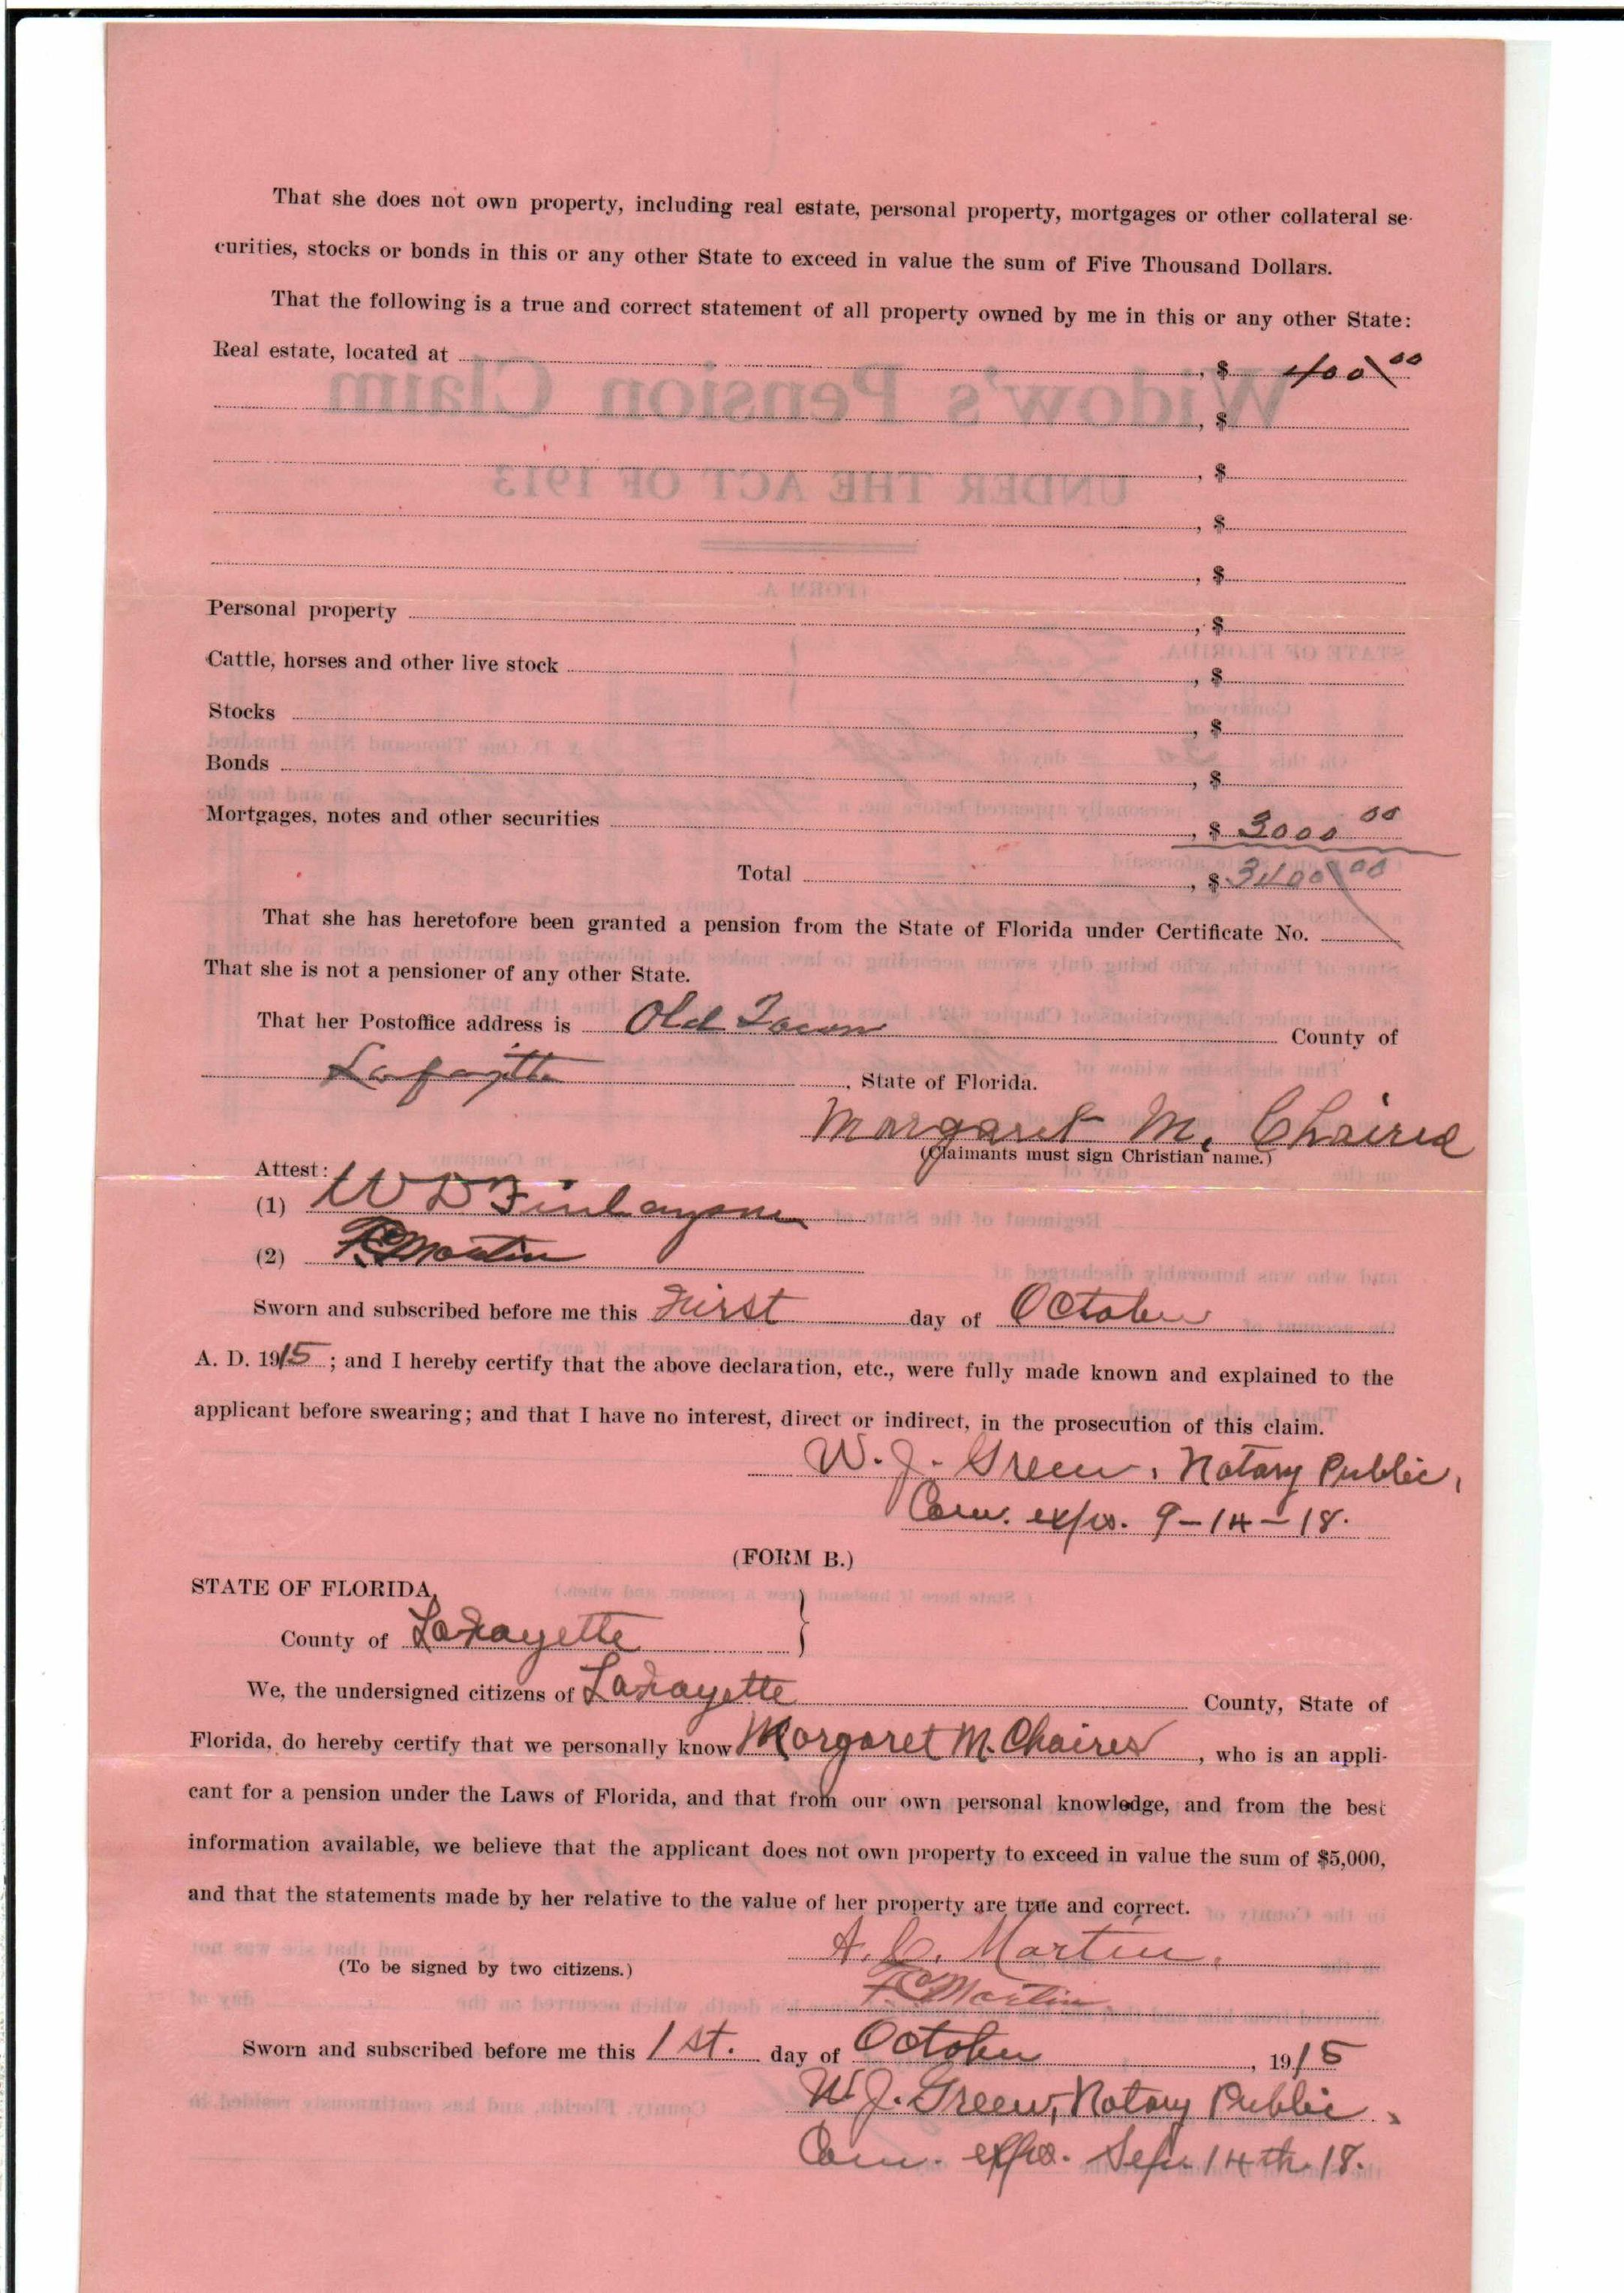 That she does not own property, including real estate, personal property, mortgages or other collateral se-
curities, stocks or bonds in this or any other State to exceed in value the sum of Five Thousand Dollars.
That the following is a true and correct statement of all property owned by me in this or any other State:
Real estate, located at , $ 400 00
, $
, $
, $
, $
Personal property , $
Cattle, horses and other live stock , $
Stocks , $
Bonds , $
Mortgages, notes and other securities , $ 3000 00
Total , $ 3400 00
That she has heretofore been granted a pension from the State of Florida under Certificate No.
That she is not a pensioner of any other State.
That her Postoffice address is Old Town County of
Lafayette , State of Florida.
Margaret M. Chaires
(Claimants must sign Christian name.)
Attest:
(1) W D Finlayson
(2) F. C. Martin
Sworn and subscribed before me this First day of October
A. D. 1915 ; and I hereby certify that the above declaration, etc., were fully made known and explained to the
applicant before swearing; and that I have no interest, direct or indirect, in the prosecution of this claim.
W. J. Green, Notary Public,
Com. exps. 9-14-18.
(FORM B.)
STATE OF FLORIDA,
County of Lafayette }
We, the undersigned citizens of Lafayette County, State of
Florida, do hereby certify that we personally know Margaret M. Chaires , who is an appli-
cant for a pension under the Laws of Florida, and that from our own personal knowledge, and from the best
information available, we believe that the applicant does not own property to exceed in value the sum of $5,000,
and that the statements made by her relative to the value of her property are true and correct.
A. C. Martin,
(To be signed by two citizens.)
F. C. Martin
Sworn and subscribed before me this 1st. day of October , 1915
W. J. Green, Notary Public
Com. exps. Sep. 14th. 18.